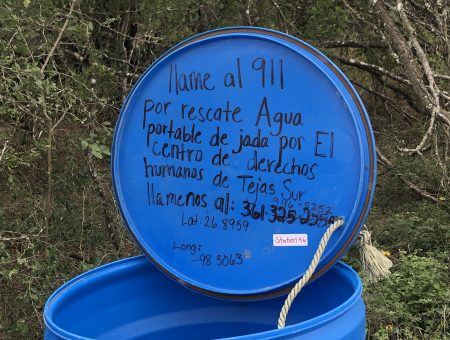 llame al 911
por rescate Agua
portable de jada por El
centro de derechos
humanos de Tejas Sur
llamenos al: 361-325-2555
Lat: 26.8959
Station 46
Long:
-98.3063